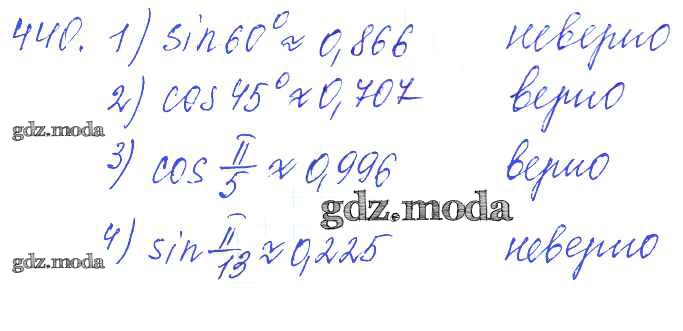 440. 1) sin60° ≈ 0,866 неверно
2) cos45° ≈ 0,707 верно
gdz.moda
3) cos π/5 ≈ 0,996 верно
gdz.moda
4) sin π/13 ≈ 0,225 неверно
gdz.moda